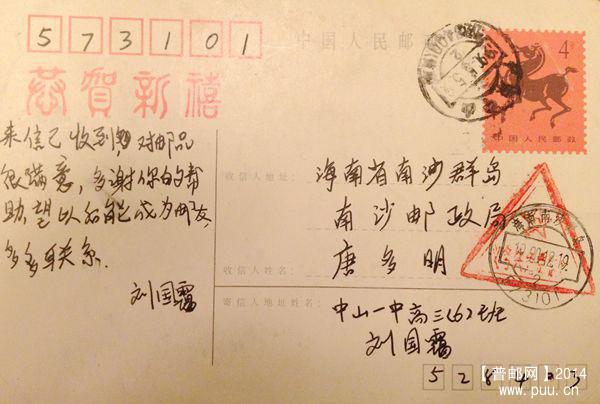 573101
中国人民邮政
4
中国人民邮政
恭贺新禧
来信已收到, 对邮品
很满意, 多谢你的帮
助, 望以后能成为邮友,
多多联系.
刘国霭
收信人地址:
海南省南沙群岛
南沙邮政局
收信人姓名:
唐多明
寄信人地址姓名:
中山一中高三(6)班
刘国霭
528403
【普邮网】2014
www.puu.cn